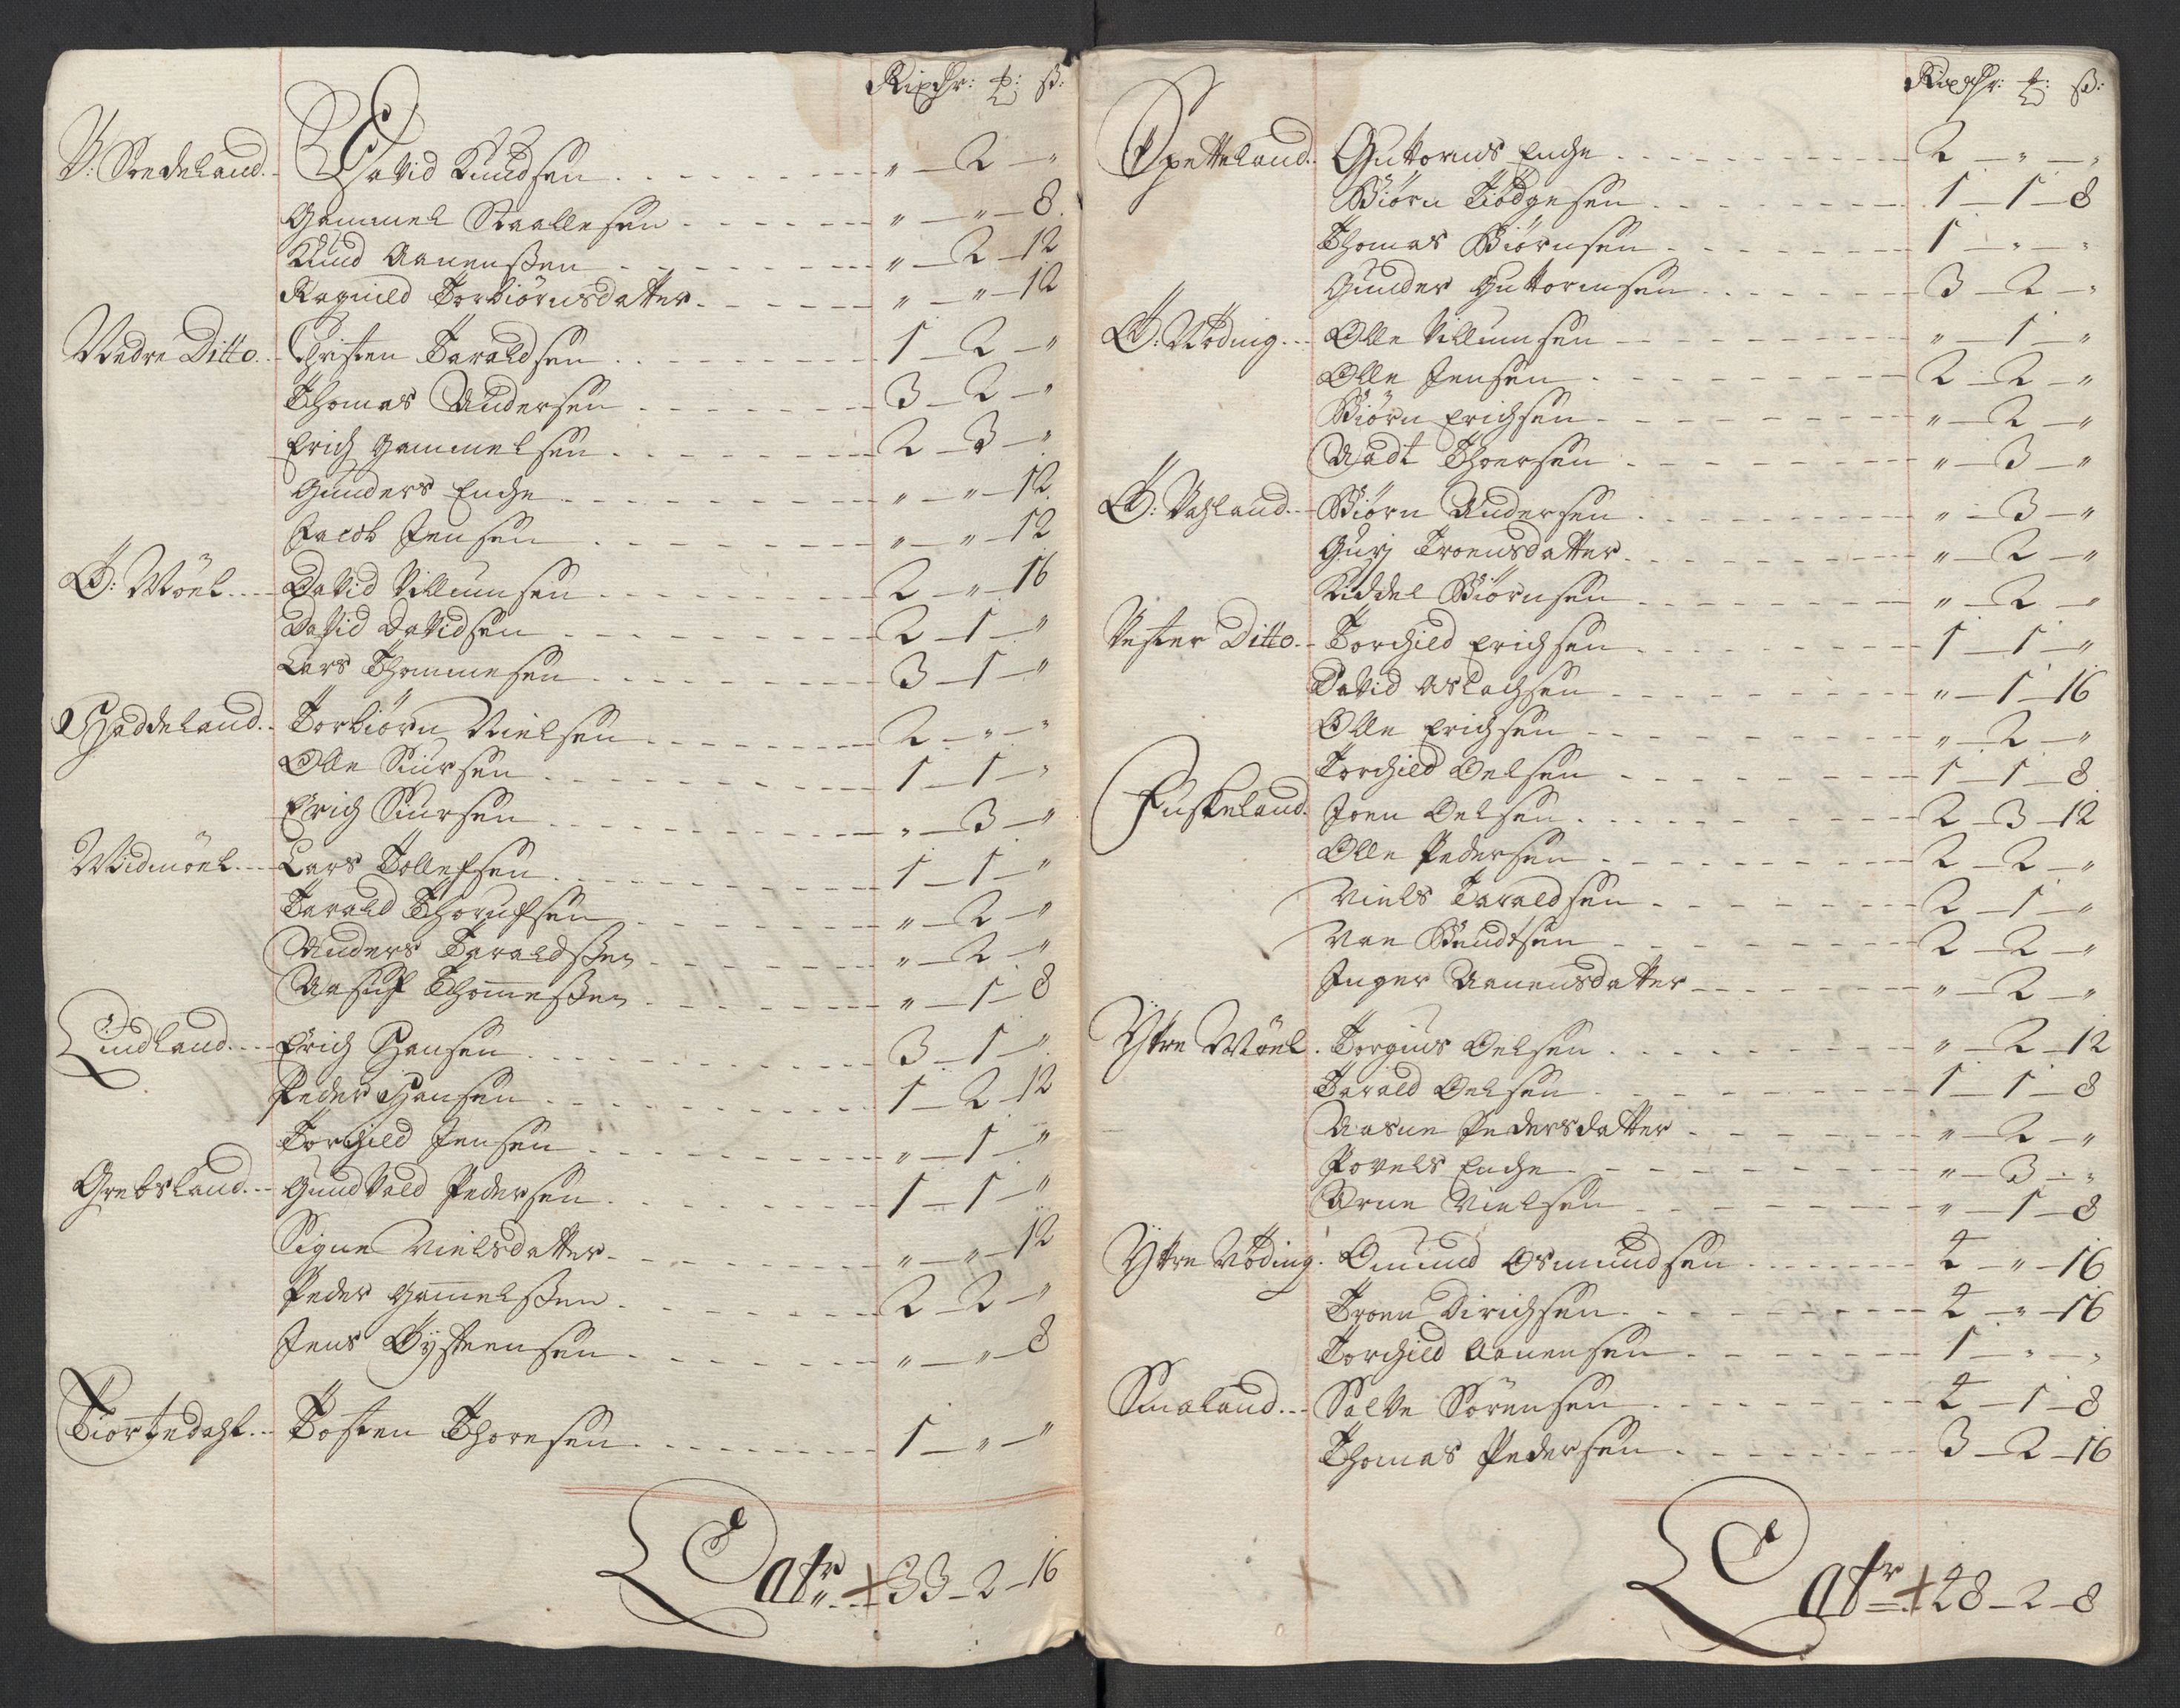 Rixdr: ƒ: ß:
V: Sredeland. David Knudsen " — 2 — "
Gammel Staallesen " — " — 8
Knud Aanenßen " — 2 — 12
Ragnild Torbiörnsdatter " — " — 12
Nedre Ditto Christen Taraldsen 1 — 2 — "
Thomas Andersen 3 — 2 — "
Erich Gammelsen 2 — 3 — "
Gunders Enche " — " — 12
Jacob Jensen " — " — 12
Ö: Möel David Villumsen 2 — " — 16
David Davidsen 2 — 1 — "
Lars Thommesen 3 — 1 — "
Haddeland Torbiörn Nielsen 2 — " — "
Olle Siursen 1 — 1 — "
Erich Siursen " — 3 — "
Midmöel Lars Tollefsen 1 — 1 — "
Tarald Thorufsen " — 2 — "
Anders Taraldßen " — 2 — "
Aasuf Thomeßen " — 1 — 8
Lindland Erich Hansen 3 — 1 — "
Peder Hansen 1 — 2 — 12
Torchild Jensen " — 1 — "
Grebsland Gundvald Pedersen 1 — 1 — "
Signe Nielsdatter " — " — 12
Peder Gamelßen 2 — 2 — "
Jens Öysteensen " — " — 8
Tiortedahl Tosten Thoresen 1 — " — "
Latr 33 — 2 — 16
Rixdr: ƒ: ß:
Spetteland Guttorms Enche 2 — " — "
Biörn Tiödgesen 1 — 1 — 8
Thomas Biörnsen 1 — " — "
Gunder Guttormsen 3 — 2 — "
Ö: Nöding Olle Villumsen " — 1 — "
Olle Jensen 2 — 2 — "
Biörn Erichsen " — 2 — "
Madt Thoersen " — 3 — "
Ö: Vahland Biörn Andersen " — 3 — "
Gurj Troensdatter " — 2 — "
Kiddel Biörnsen " — 2 — "
Vester Ditto Torchild Erichsen 1 — 1 — "
David Aslachsen " — 1 — 16
Olle Erichsen " — 2 — "
Torchild Oelsen 1 — 1 — 8
Fuskeland Joen Oelsen 2 — 3 — 12
Olle Pedersen 2 — 2 — "
Niels Taraldsen 2 — 1 — "
Nae Bendtsen 2 — 2 — "
Inger Aanensdatter " — 2 — "
Yttre Möel Torgius Oelsen " — 2 — 12
Tarald Oelsen 1 — 1 — 8
Aasne Pedersdatter " — 2 — "
Povels Enche " — 3 — "
Arne Nielsen " — 1 — 8
Yttre Nöding Omund Osmundsen — " — 16
Troen Dirichsen — " — 16
Torchild Aanensen 1 — " — "
Smaland Salve Sörensen — 1 — 8
Thomas Pedersen 3 — 2 — 16
Latr 28 — 2 — 8